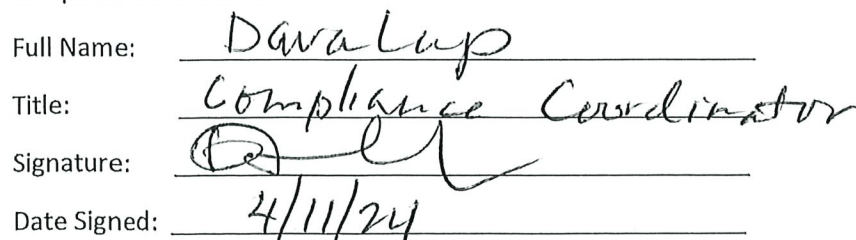 Full Name: Dava Lup
Title: Compliance Coordinator
Signature:
Date Signed: 4/11/24